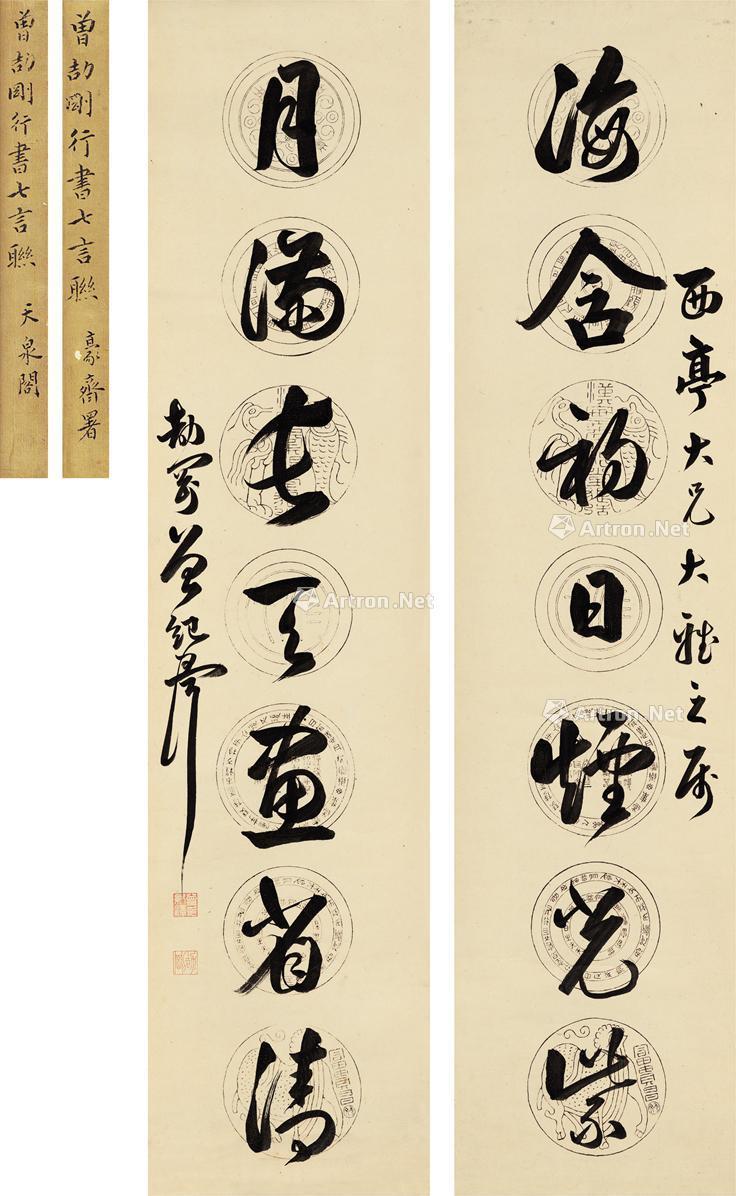 西亭大兄大雅之屬
海含初日煙光紫
月滿長天畫省清
劼剛曾紀澤
曾劼剛行書七言聯
齋署
曾劼剛行書七言聯
天泉閣
Artron.Net
Artron.Net
Artron.Net